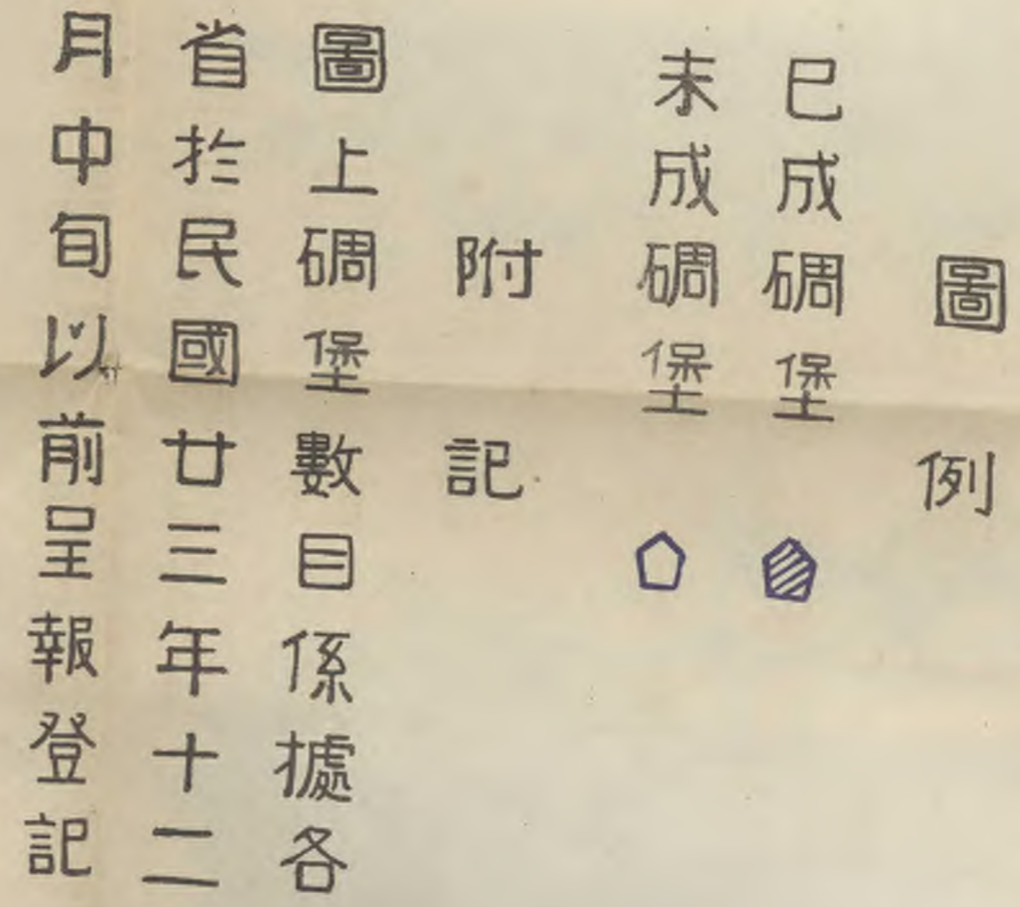 圖例
已成碉堡
未成碉堡
附記
圖上碉堡數目係據各
省於民國廿三年十二
月中旬以前呈報登記